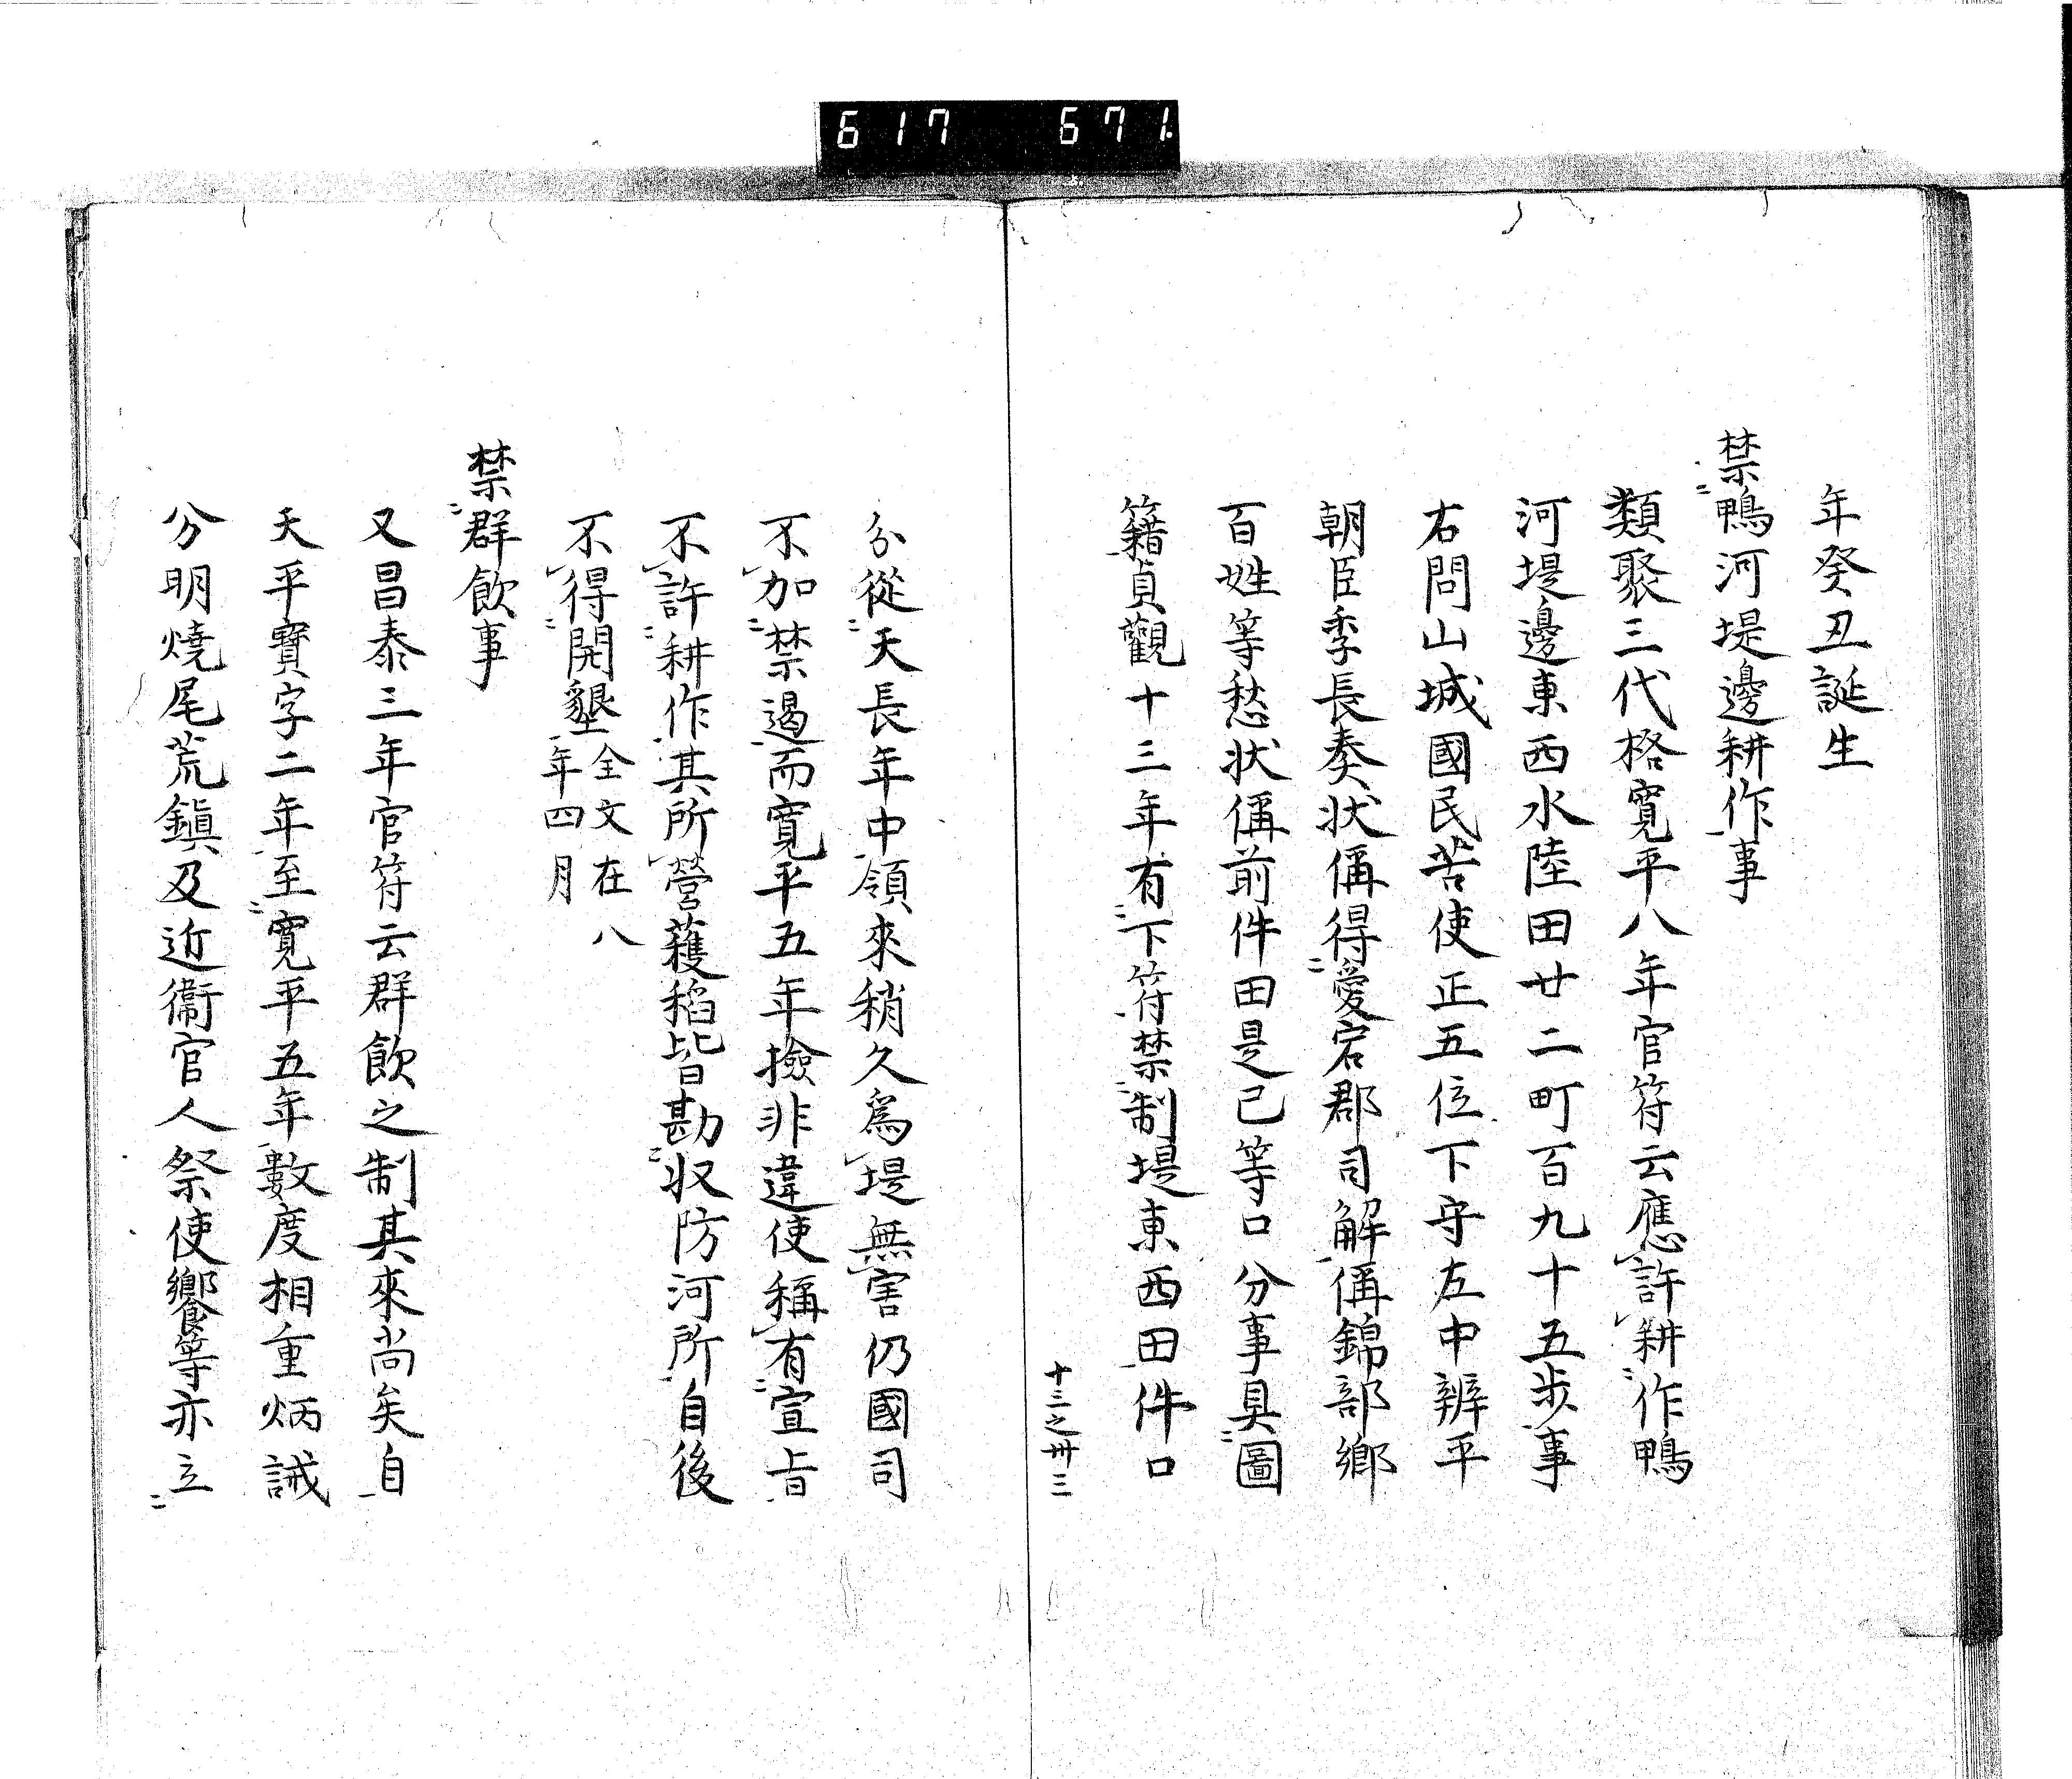 617 671
年癸丑誕生
禁鴨河堤邊耕作事
類聚三代格寛平八年官符云應許耕作鴨
河堤邊東西水陸田廿二町百九十五歩事
右問山城國民苦使正五位下守左中辨平
朝臣季長奏状偁得愛宕郡司解偁錦部鄉
百姓等愁状偁前件田是已等口分事具圖
籍貞觀十三年有下符禁制堤東西田件口
十三之卅三
分從天長年中領來稍久爲堤無害仍國司
不加禁遏而寛平五年撿非違使稱有宣旨
不許耕作其所營蘰稻皆勘收防河所自後
不得開墾全文在八
年四月
禁群飲事
又昌泰三年官符云群飲之制其來尚矣自
天平寶字二年至寛平五年數度相重炳誡
分明燒尾荒鎭及近衞官人祭使饗等亦立